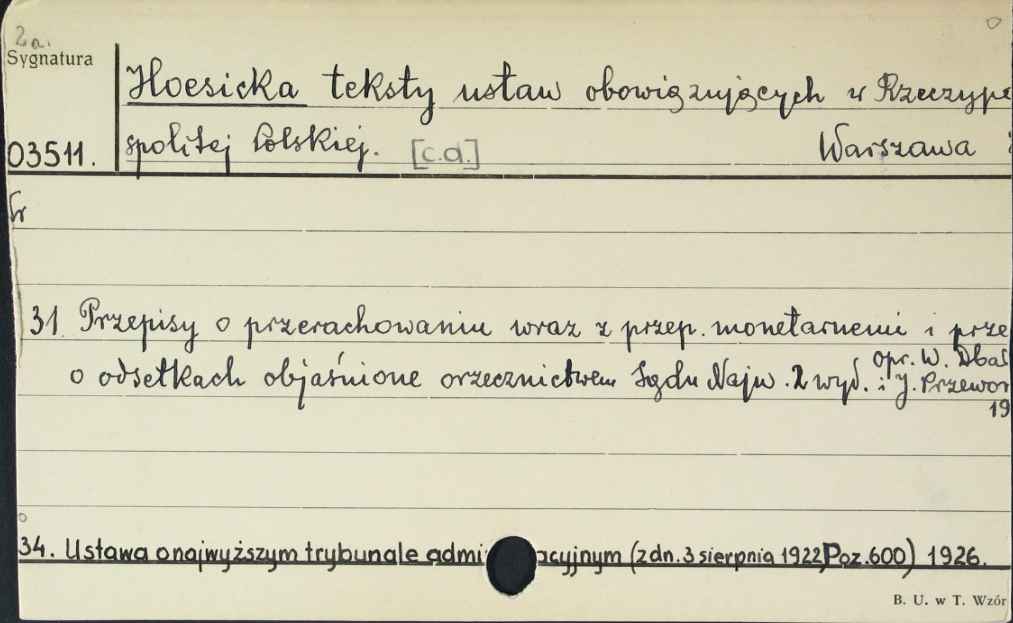 2a.
Sygnatura
03511.
Hoesicka teksty ustaw obowiązujących w Rzeczypo
spolitej Polskiej. [c.d.] Warszawa
Nr
31. Przepisy o przerachowaniu wraz z przep. monetarnemi i prze
opr. W. Dbał
o odsetkach objaśnione orzecznictwem Sądu Najw. 2 wyd. i J. Przewor
19
34. Ustawa o najwyższym trybunale admi acyjnym (z dn. 3 sierpnia 1922 Poz. 600) 1926.
B. U. w T. Wzór